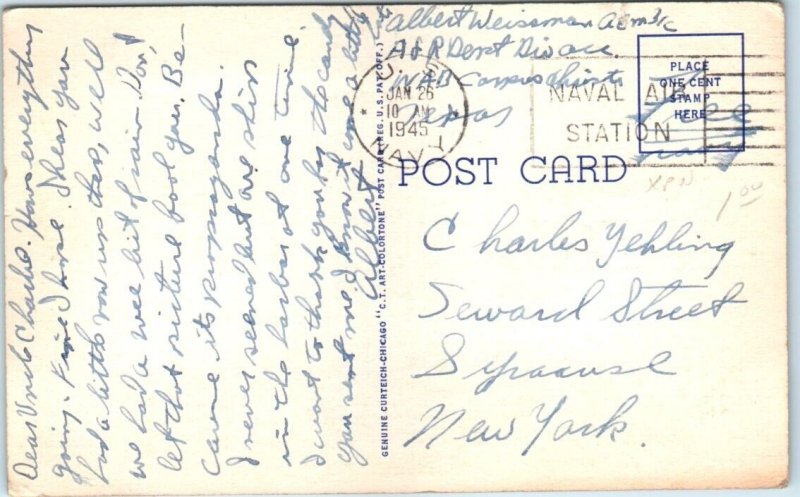 Albert Weissman
A & R Dept Div
NAB Corpus Christi
Texas
U. S. NAVY
JAN 26
10 AM
1945
NAVAL AIR
STATION
PLACE
ONE CENT
STAMP
HERE
Free
POST CARD
1.00
Charles Yehling
Seward Street
Syracuse
New York.
GENUINE CURTEICH-CHICAGO "C.T. ART-COLORTONE" POST CARD (REG. U.S. PAT. OFF.)
Dear Uncle Charlie. Hows everything
going. Fine I hope. I hear you
had a little snow up there, well
we had a wee bit of rain. Don't
let that picture fool you. Be-
cause its propaganda.
I never seen
in the harbor at one time.
I want to thank you for the candy
you sent me. I know it came a little
Albert